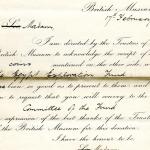 British Museum
17th February
Sir Madam
I am directed by the Trustees of
British Museum to acknowledge the receipt of
coins mentioned on the other side, w
the Egypt Exploration Fund
been so good as to present to them and
to request that you will convey to the
Committee of the Fund
expression of the best thanks of the Trustees
the British Museum for this donation
I have the honor to be